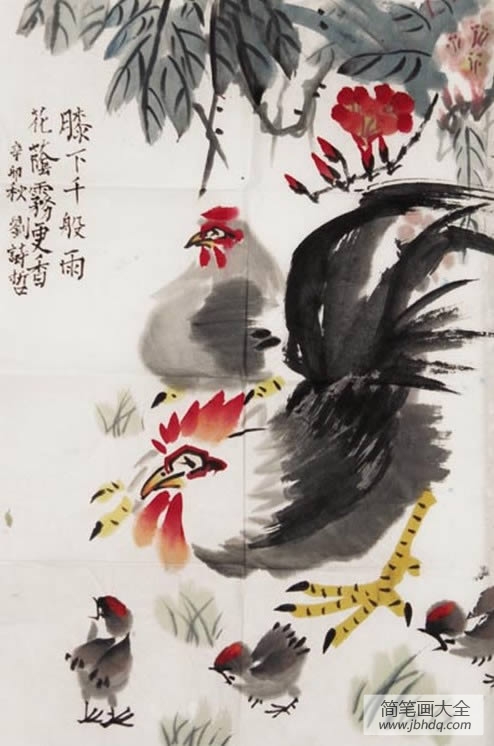 膝下千般雨
花蔭霧更香
辛卯秋 劉詩哲
简笔画大全
www.jbhdq.com